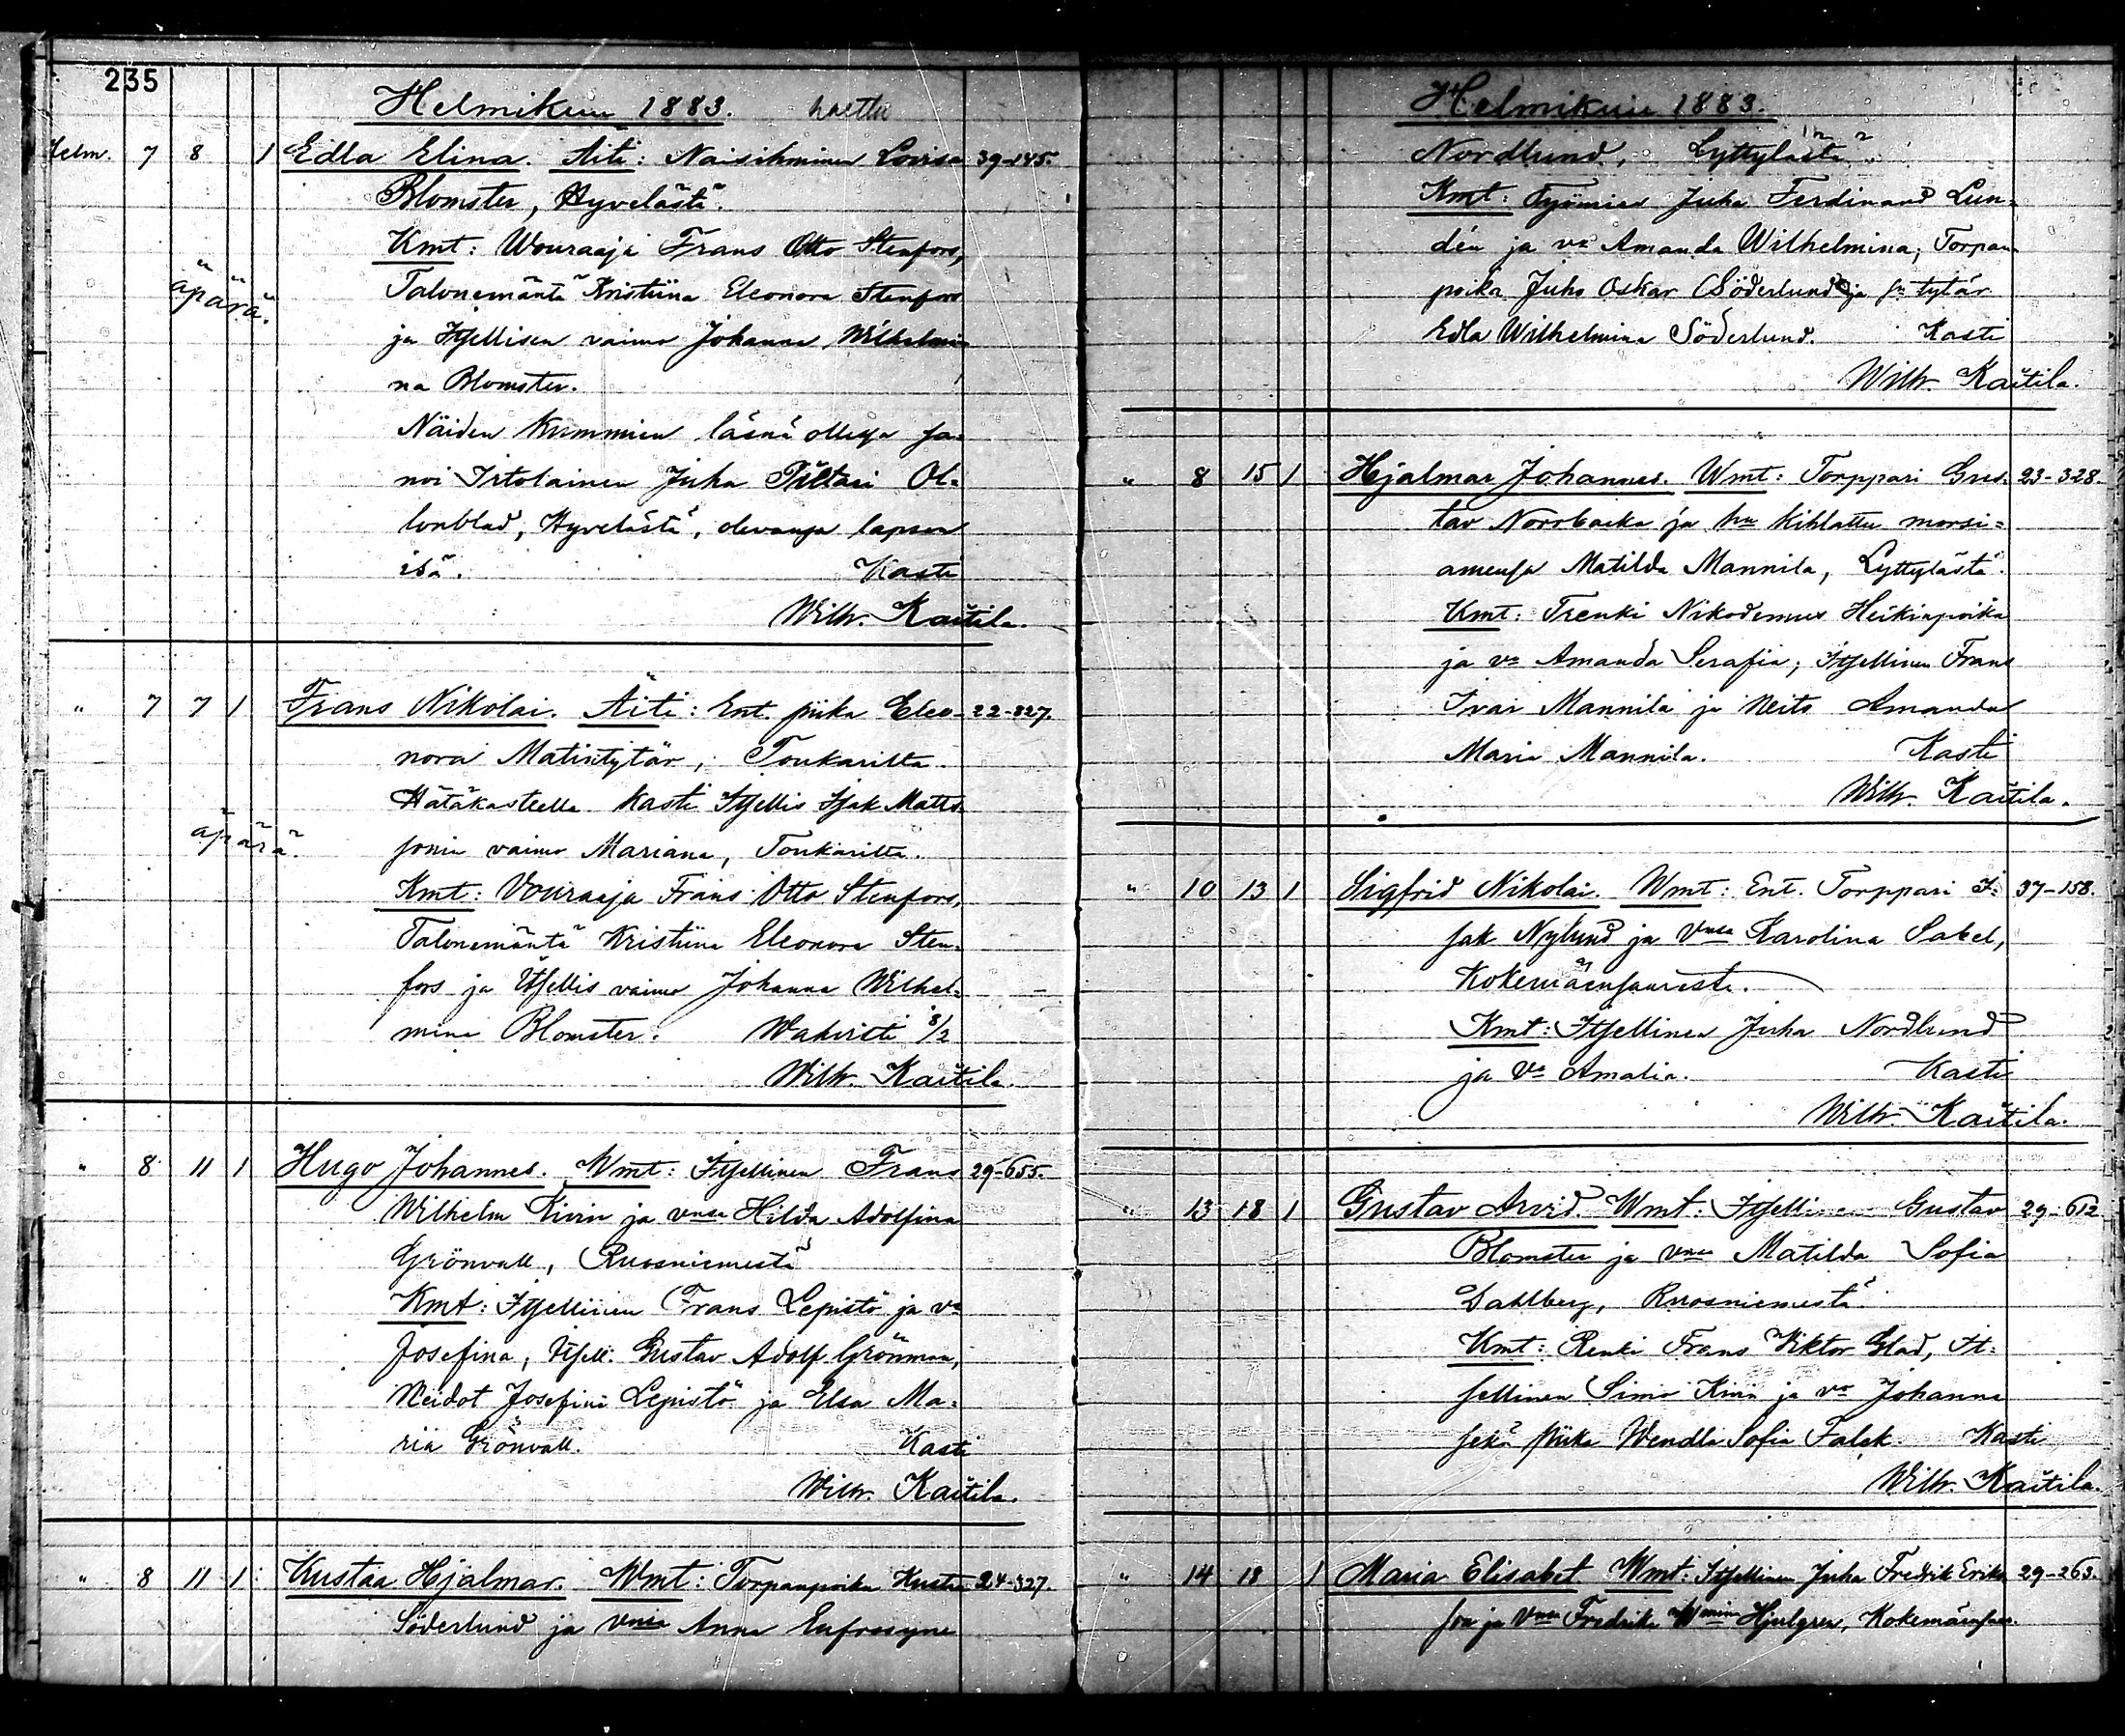 235
Helmikuu 1883.
Helm. 7 8 1 Edla Elina. Äiti: Naisihminen Lovisa 39-145.
Blomster, Hyvelästä.
Kmt: Wouraaja Frans Otto Stenfors,
Talonemäntä Kristiina Eleonora Stenfors
äpärä.
ja Itsellisen vaimo Johanna Wilhelmi-
na Blomster.
Näiden kummien läsnä ollessa sa-
noi Irtolainen Juha Ol-
lonblad, Hyvelästä, olevansa lapsen
isä. Kasti
Wilh. Kaitila.
" 7 7 1 Frans Nikolai. Äiti: Ent. piika Eleo- 22-327.
nora Matintytär, Toukarilta.
Hätäkasteella kasti Itsellis Isak Matts-
äpärä.
sonin vaimo Mariana, Toukarilta.
Kmt: Vouraaja Frans Otto Stenfors,
Talonemäntä Kristiina Eleonora Sten-
fors ja Itsellis vaimo Johanna Wilhel-
mina Blomster. Wahvisti 8/2
Wilh. Kaitila.
" 8 11 1 Hugo Johannes. Wmt: Itsellinen Frans 29-655.
Wilhelm Kivin ja vnsa Hilda Adolfina
Grönvall, Ruosniemestä
Kmt: Itsellinen Frans Lepistö ja va
Josefina, Itsell. Gustav Adolf Grönman,
Neidot Josefina Lepistö ja Elsa Ma-
ria Grönvall. Kasti
Wilh. Kaitila.
" 8 11 1 Kustaa Hjalmar. Wmt: Torpanpoika Kustaa 24-327.
Söderlund ja vnsa Anna Eufrosyne
Helmikuu 1883.
Nordlund, Lyttylästä.
Kmt: Työmies Juha Ferdinand Lun-
dén ja va Amanda Wilhelmina, Torpan
poika Juho Oskar Söderlund ja sn tytär
Edla Wilhelmina Söderlund. Kasti
Wilh. Kaitila.
" 8 15 1 Hjalmar Johannes. Wmt: Torppari Gus- 23-328.
tav Norrbacka ja hn kihlattu morsi-
amensa Matilda Mannila, Lyttylästä.
Kmt: Trenki Nikodemus Heikinpoika
ja va Amanda Serafia; Itsellinen Frans
Ivar Mannila ja Neito Amanda
Maria Mannila. Kasti
Wilh. Kaitila.
" 10 13 1 Sigfrid Nikolai. Wmt: Ent. Torppari I- 37-158.
sak Nylund ja Vnsa Karolina Sabel,
Kokemäensaaresta.
Kmt: Itsellinen Juha Nordlund
ja Va Amalia. Kasti
Wilh. Kaitila.
" 13 18 1 Gustav Arvid. Wmt: Itsellinen Gustav 29-612
Blomster ja vnsa Matilda Sofia
Dahlberg, Ruosniemestä.
Kmt: Renki Frans Viktor Glad, It-
sellinen Simo Kivin ja va Johanna
sekä piika Wendla Sofia Falck. Kasti
Wilh. Kaitila.
" 14 18 1 Maria Elisabet Wmt: Itsellinen Juha Fredrik Eriks- 29-263.
son ja Vnsa Fredrika Wmina Hjulgren, Kokemäensaar.